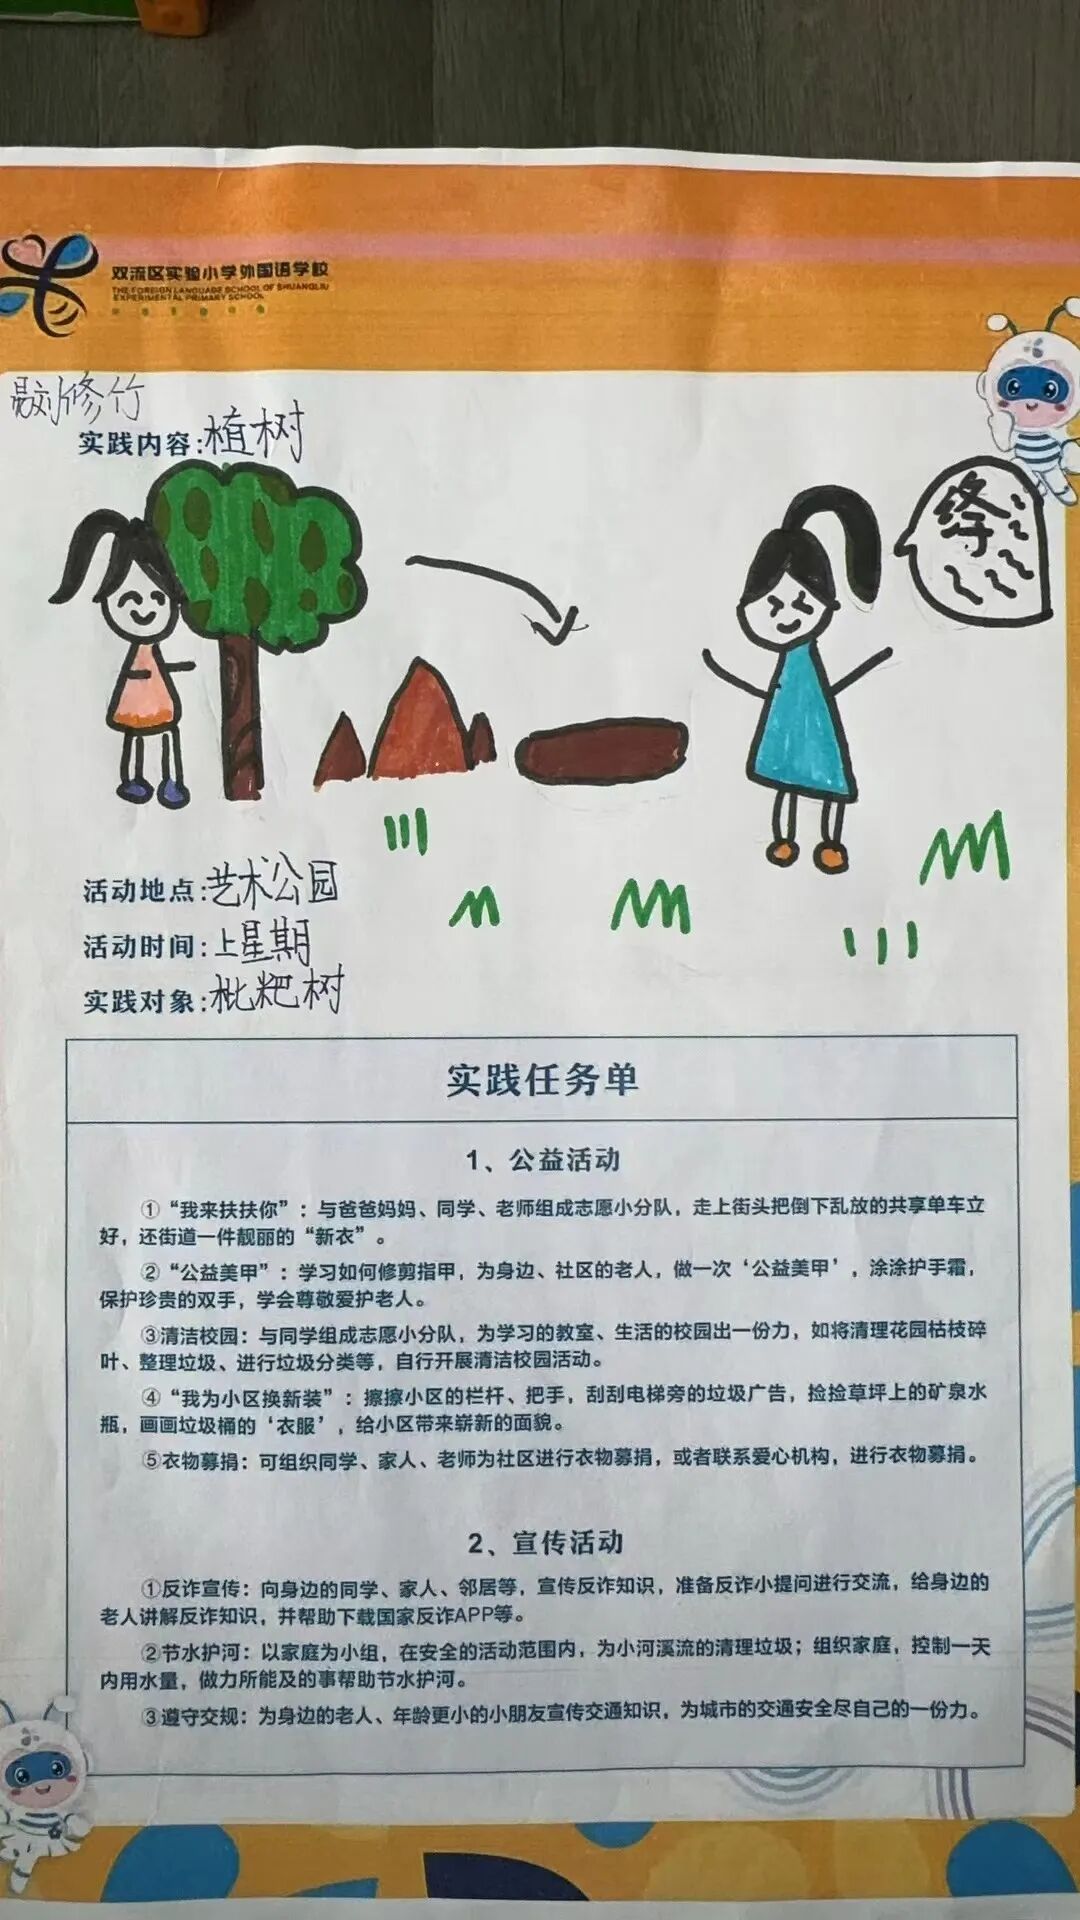 双流区实验小学外国语学校
THE FOREIGN LANGUAGE SCHOOL OF SHUANGLIU
EXPERIMENTAL PRIMARY SCHOOL
刘修竹
实践内容:植树
活动地点:艺术公园
活动时间:上星期
实践对象:枇杷树
实践任务单
1、公益活动
①“我来扶扶你”：与爸爸妈妈、同学、老师组成志愿小分队，走上街头把倒下乱放的共享单车立
好，还街道一件靓丽的“新衣”。
②“公益美甲”：学习如何修剪指甲，为身边、社区的老人，做一次‘公益美甲’，涂涂护手霜，
保护珍贵的双手，学会尊敬爱护老人。
③清洁校园：与同学组成志愿小分队，为学习的教室、生活的校园出一份力，如将清理花园枯枝碎
叶、整理垃圾、进行垃圾分类等，自行开展清洁校园活动。
④“我为小区换新装”：擦擦小区的栏杆、把手，刮刮电梯旁的垃圾广告，捡捡草坪上的矿泉水
瓶，画画垃圾桶的‘衣服’，给小区带来崭新的面貌。
⑤衣物募捐：可组织同学、家人、老师为社区进行衣物募捐，或者联系爱心机构，进行衣物募捐。
2、宣传活动
①反诈宣传：向身边的同学、家人、邻居等，宣传反诈知识，准备反诈小提问进行交流，给身边的
老人讲解反诈知识，并帮助下载国家反诈APP等。
②节水护河：以家庭为小组，在安全的活动范围内，为小河溪流的清理垃圾；组织家庭，控制一天
内用水量，做力所能及的事帮助节水护河。
③遵守交规：为身边的老人、年龄更小的小朋友宣传交通知识，为城市的交通安全尽自己的一份力。